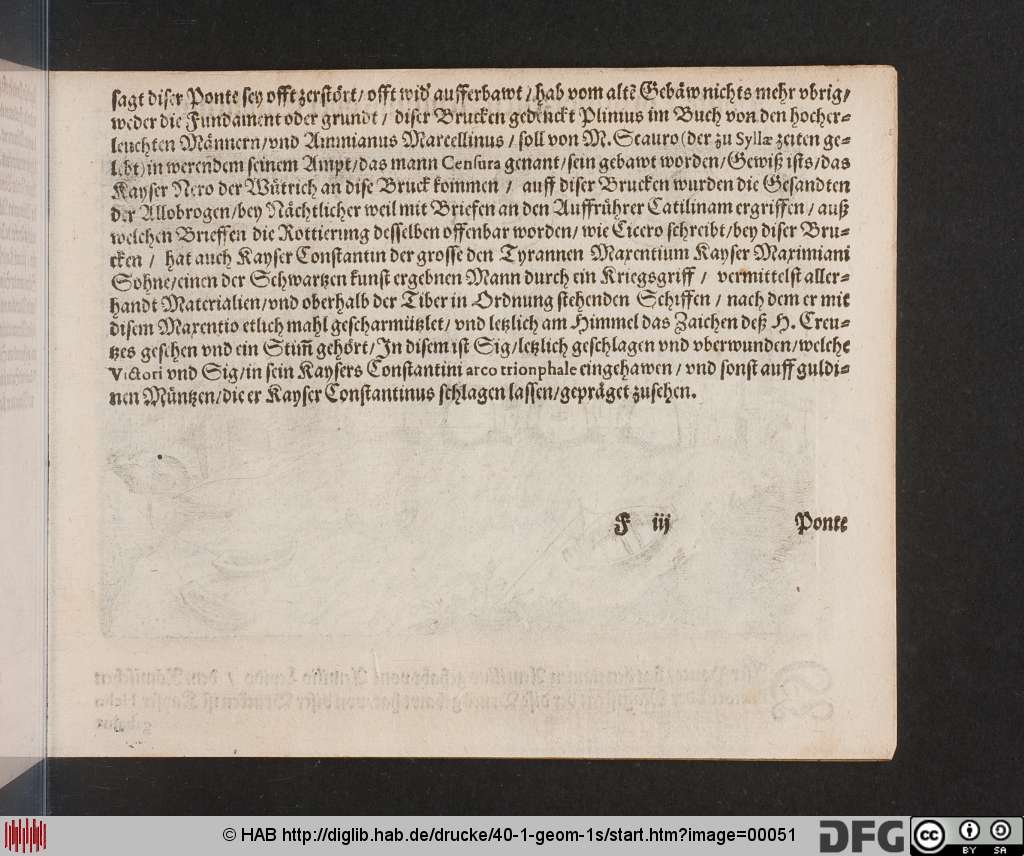 sagt diser Ponte sey offt zerstört/ offt wid' aufferbawt/ hab vom altẽ Gebäw nichts mehr vbrig/
weder die Fundament oder grundt / diser Brucken gedenckt Plinius im Buch von den hocher-
leuchten Männern/vnd Ammianus Marcellinus / soll von M. Stauro (der zu Syllæ zeiten ge-
lebt) in werendem seinem Ampt/das mann Censura genant/sein gebawt worden/Gewiß ists/das
Kayser Nero der Wütrich an dise Bruck kommen / auff diser Brucken wurden die Gesandten
der Allobrogen/bey Nächtlicher weil mit Briefen an den Auffrührer Catilinam ergriffen / auß
welchen Brieffen die Rottierung desselben offenbar worden/ wie Cicero schreibt/bey diser Bru-
cken / hat auch Kayser Constantin der grosse den Tyrannen Maxentium Kayser Maximiani
Sohne/einen der Schwartzen kunst ergebnen Mann durch ein Kriegsgriff / vermittelst aller-
handt Materialien/vnd oberhalb der Tiber in Ordnung stehenden Schiffen / nach dem er mit
disem Maxentio etlich mahl gescharmützlet/ vnd letzlich am Himmel das Zaichen deß H. Creu-
tzes gesehen vnd ein Stim̃ gehört/In disem ist Sig/letzlich geschlagen vnd vberwunden/welche
Victori vnd Sig/in sein Kaysers Constantini arco trionphale eingehawen / vnd sonst auff guldi-
nen Müntzen/die er Kayser Constantinus schlagen lassen/gepräget zusehen.
F iij Ponte
© HAB http://diglib.hab.de/drucke/40-1-geom-1s/start.htm?image=00051 DFG cc BY SA